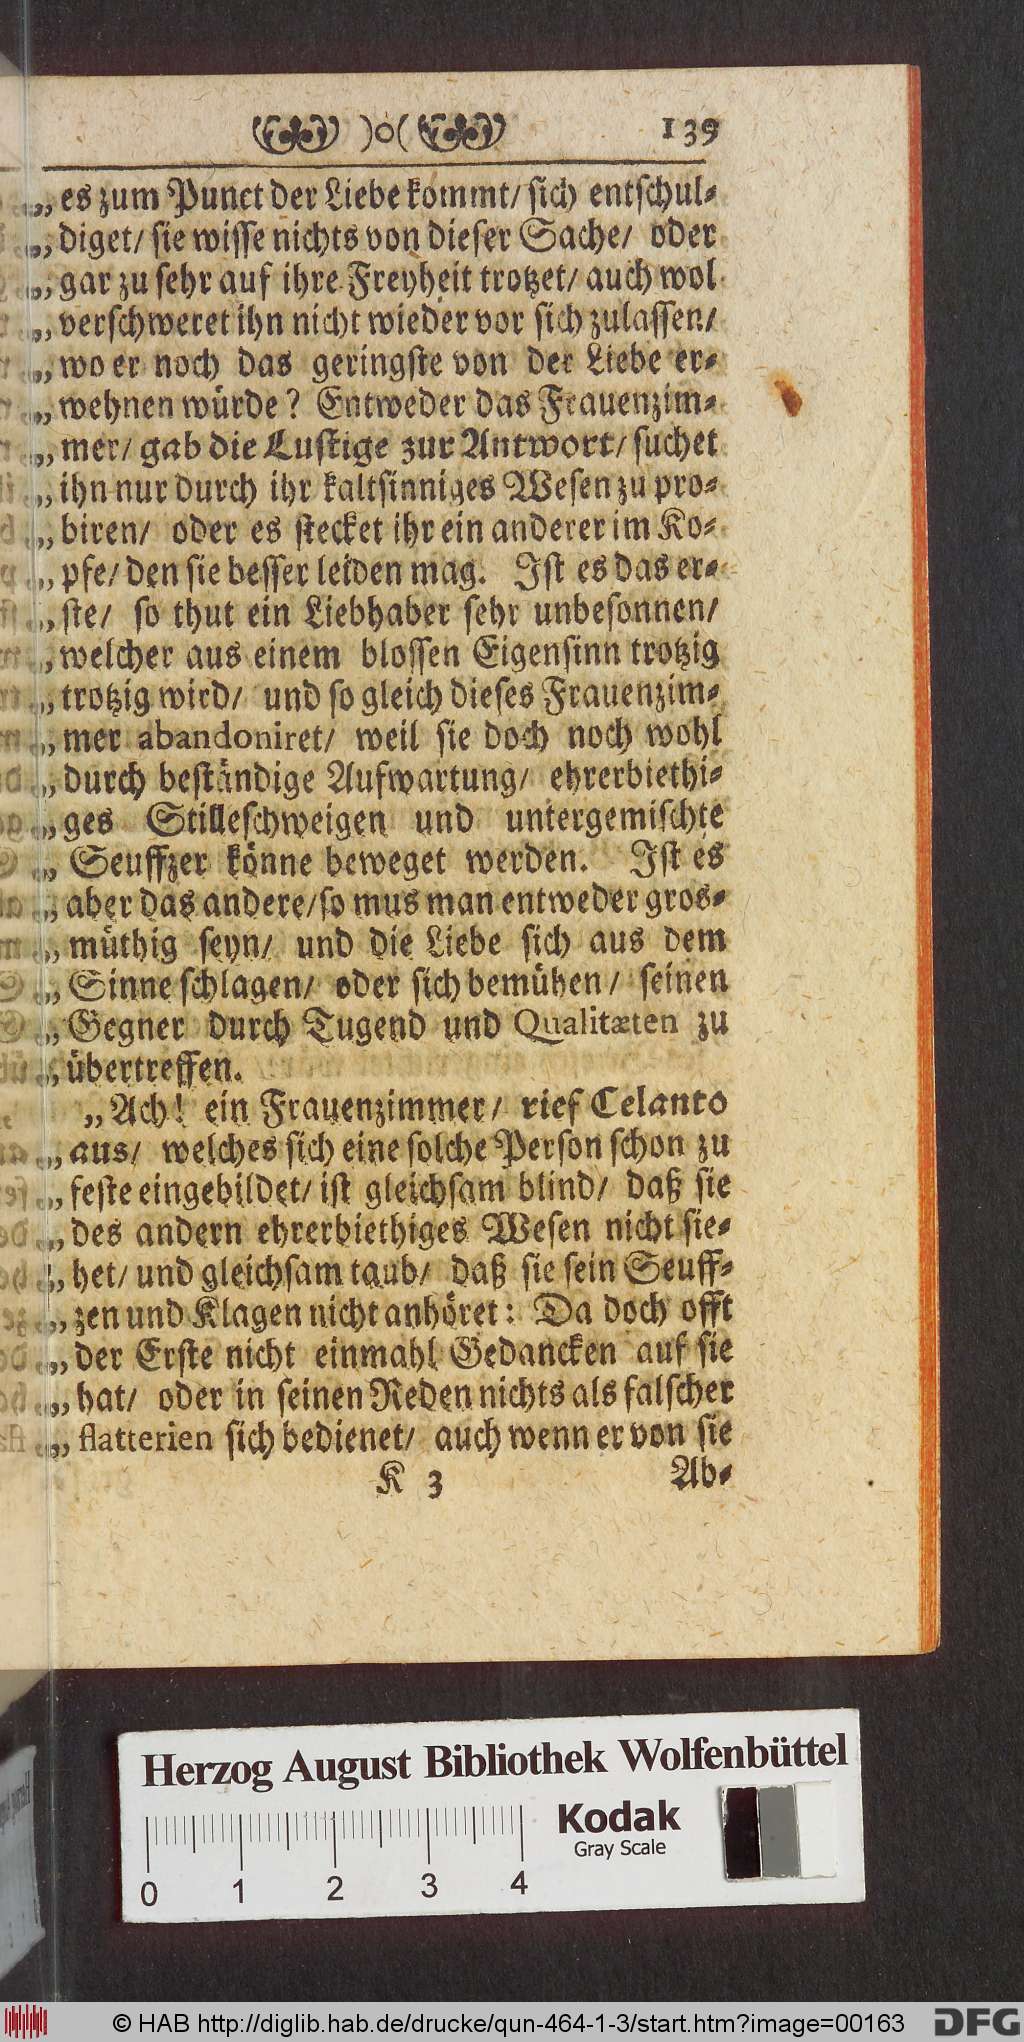 )o( 139
„es zum Punct der Liebe kommt/ sich entschul-
„diget/ sie wisse nichts von dieser Sache/ oder
„gar zu sehr auf ihre Freyheit trotzet/ auch wol
„verschweret ihn nicht wieder vor sich zulassen/
„wo er noch das geringste von der Liebe er-
„wehnen würde? Entweder das Frauenzim-
„mer/ gab die Lustige zur Antwort/ suchet
„ihn nur durch ihr kaltsinniges Wesen zu pro-
„biren/ oder es stecket ihr ein anderer im Ko-
„pfe/ den sie besser leiden mag. Ist es das er-
„ste/ so thut ein Liebhaber sehr unbesonnen/
„welcher aus einem blossen Eigensinn trotzig
„trotzig wird/ und so gleich dieses Frauenzim-
„mer abandoniret/ weil sie doch noch wohl
„durch beständige Aufwartung/ ehrerbiethi-
„ges Stilleschweigen und untergemischte
„Seuffzer könne beweget werden. Ist es
„aber das andere/ so mus man entweder gros-
„müthig seyn/ und die Liebe sich aus dem
„Sinne schlagen/ oder sich bemühen/ seinen
„Gegner durch Tugend und Qualitæten zu
„übertreffen.
„Ach! ein Frauenzimmer/ rief Celanto
„aus/ welches sich eine solche Person schon zu
„feste eingebildet/ ist gleichsam blind/ daß sie
„des andern ehrerbiethiges Wesen nicht sie-
„het/ und gleichsam taub/ daß sie sein Seuff-
„zen und Klagen nicht anhöret: Da doch offt
„der Erste nicht einmahl Gedancken auf sie
„hat/ oder in seinen Reden nichts als falscher
„flatterien sich bedienet/ auch wenn er von sie
K 3 Ab-
Herzog August Bibliothek Wolfenbüttel
Kodak
Gray Scale
0 1 2 3 4
© HAB http://diglib.hab.de/drucke/qun-464-1-3/start.htm?image=00163 DFG